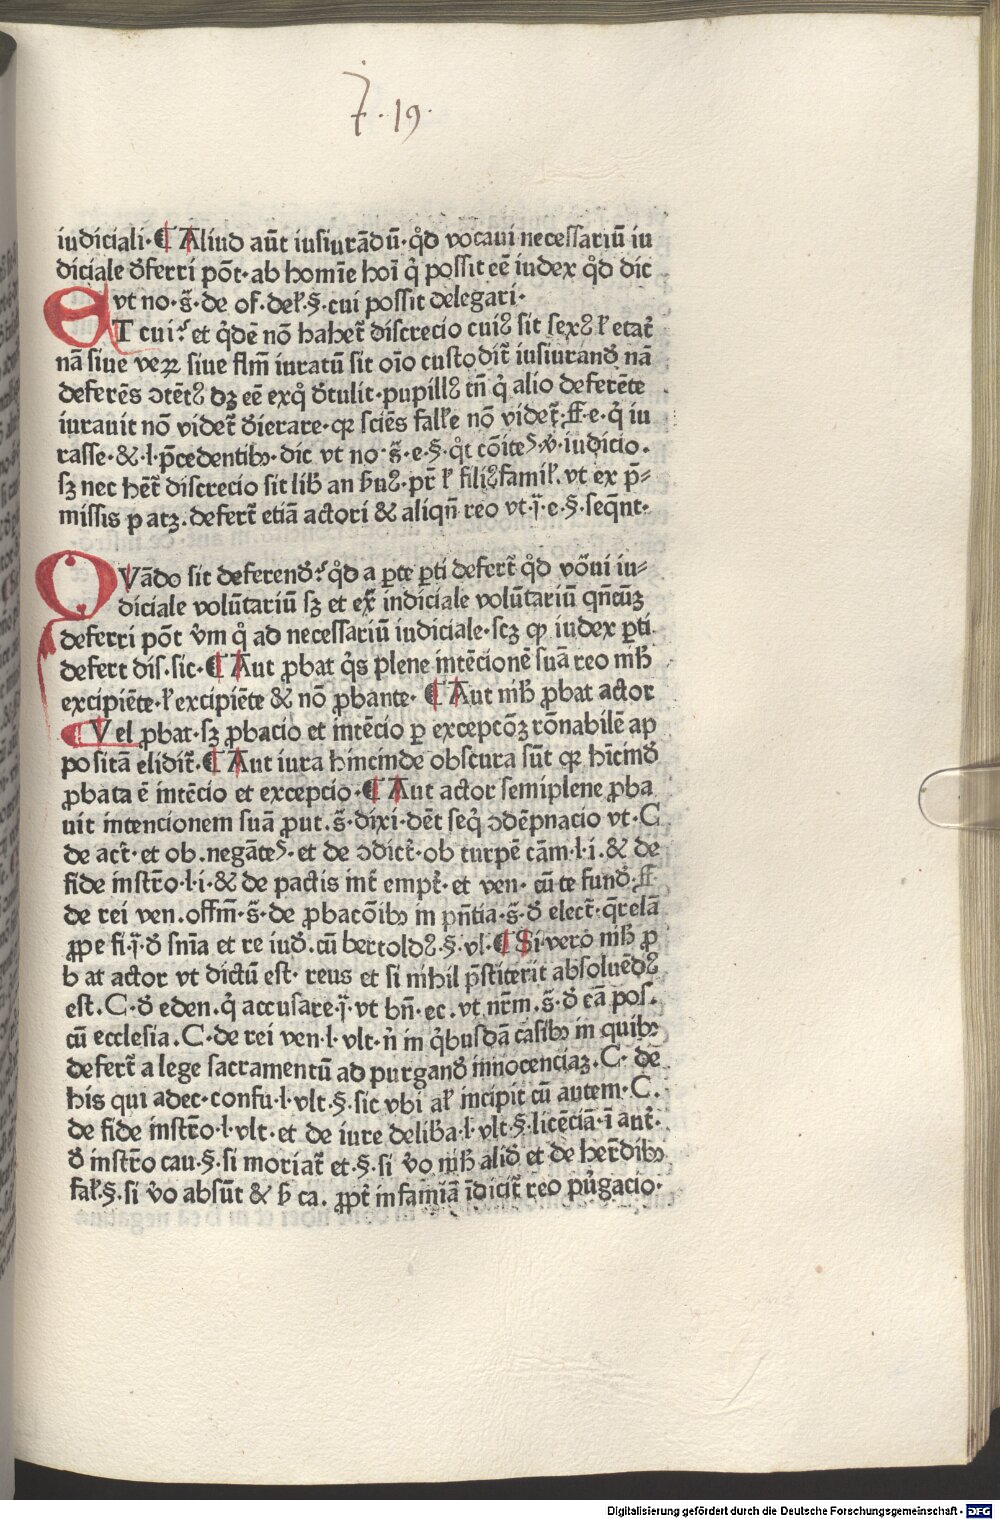 7.19.
iudiciali·¶ Aliud aūt iusiurādū·qd̊ vocaui necessariū iu
diciale d̄ferri pōt·ab homīe hoī q̇ possit eē iudex qd̊ dic
vt no·s̄·de of·deł·§·cui possit delegari·
ET cui? et q̇dē nō habet̄ discrecio cuiꝰ sit sexꝰ ł etat̄
nā siue veꝝ siue flm̄ iuratū sit oīo custodit̄ iusiurand̄ nā
deferēs ɔtētꝰ dꝫ eē exq̊ d̄tulit·pupillꝰ tn̄ q̇ alio deferēte
iurauit nō videt̄ d̄ierare·qꝛ sciēs falłe nō videt̄·ff·e·q̇ iu
rasse·&·l·p̄cedentibꝫ·dic vt no·s̄·e·§·qt̊ cōites̉·v̉·iudicio·
sꝫ nec hēt̄ discrecio sit lib̄ an ẜuꝰ·pr̄ ł filiꝰfamił·vt ex p̄-
missis p atꝫ·defert̄ etiā actori & aliqn̄ reo vt·j̄·e·§·seqn̄t·
QVādo sit deferend̄? qd̊ a ꝑte ꝑti defert̄ qd̊ vōui iu-
diciale volūtariū sꝫ et ex̄ indiciale volūtariū qn̄cūꝫ
deferri pōt v̄m q̊ ad necessariū iudiciale·scꝫ ꝙ iudex ꝑti
defert dis·sic·¶ Aut ꝓbat q̇s plene intēcionē suā reo nih̄
excipiēte·ł excipiēte & nō ꝓbante·¶ Aut nih̄ ꝓbat actor
¶ Vel ꝓbat·sꝫ ꝓbacio et intēcio ꝑ excepcōꝫ rōnabilē ap
positā elidit̄·¶ Aut iura hincinde obscura sūt qꝛ hīcind̄
ꝓbata ē intēcio et excepcio·¶ Aut actor semiplene ꝓba
uit intencionem suā ꝓut·s̄·dixi·dēt seq̇ ɔdēpnacio vt·C
de act̄·et ob·negātes̉·et de ɔdict̄·ob turpē cām·l·i·& de
fide instr̄o·l·i·& de pactis int̄ empt̄·et ven·cū te fund̄·ff·
de rei ven·offm̄·s̄·de ꝓbacōibꝫ in pn̄tia·s̄·d̄ elect̄·q̄relā
ꝓpe fi·j̄·d̄ sn̄ia et re iud̄·cū bertoldꝰ·§·vl·¶ Si vero nih̄ ꝓ
b at actor vt dictū est·reus et si nihil p̄stiterit absoluēdꝰ
est·C·d̄ eden·q̇ accusare·j̄·vt bn̄·ec·vt nr̄m·s̄·d̄ eā pos·
cū ecclesia·C·de rei ven·l·vlt·n̉ in q̇busdā casibꝫ in quibꝫ
defert̄ a lege sacramentū ad purgand̄ innocenciaꝫ·C·de
his qui adec·confu·l·vlt·§·sic vbi ał incipit cū autem·C·
de fide instr̄o·l·vlt·et de iure delib̄a·l·vlt·§·licēciā·ī aut̄·
d̄ instr̄o cau·§·si moriat̄ et·§·si v̉o nih̄ alid̄ et de her̄dibꝫ
fał·§·si v̉o absūt & ẜ ca·ꝓpt̄ infamiā īdicit̄ reo pu̇gacio·
Digitalisierung gefördert durch die Deutsche Forschungsgemeinschaft - DFG